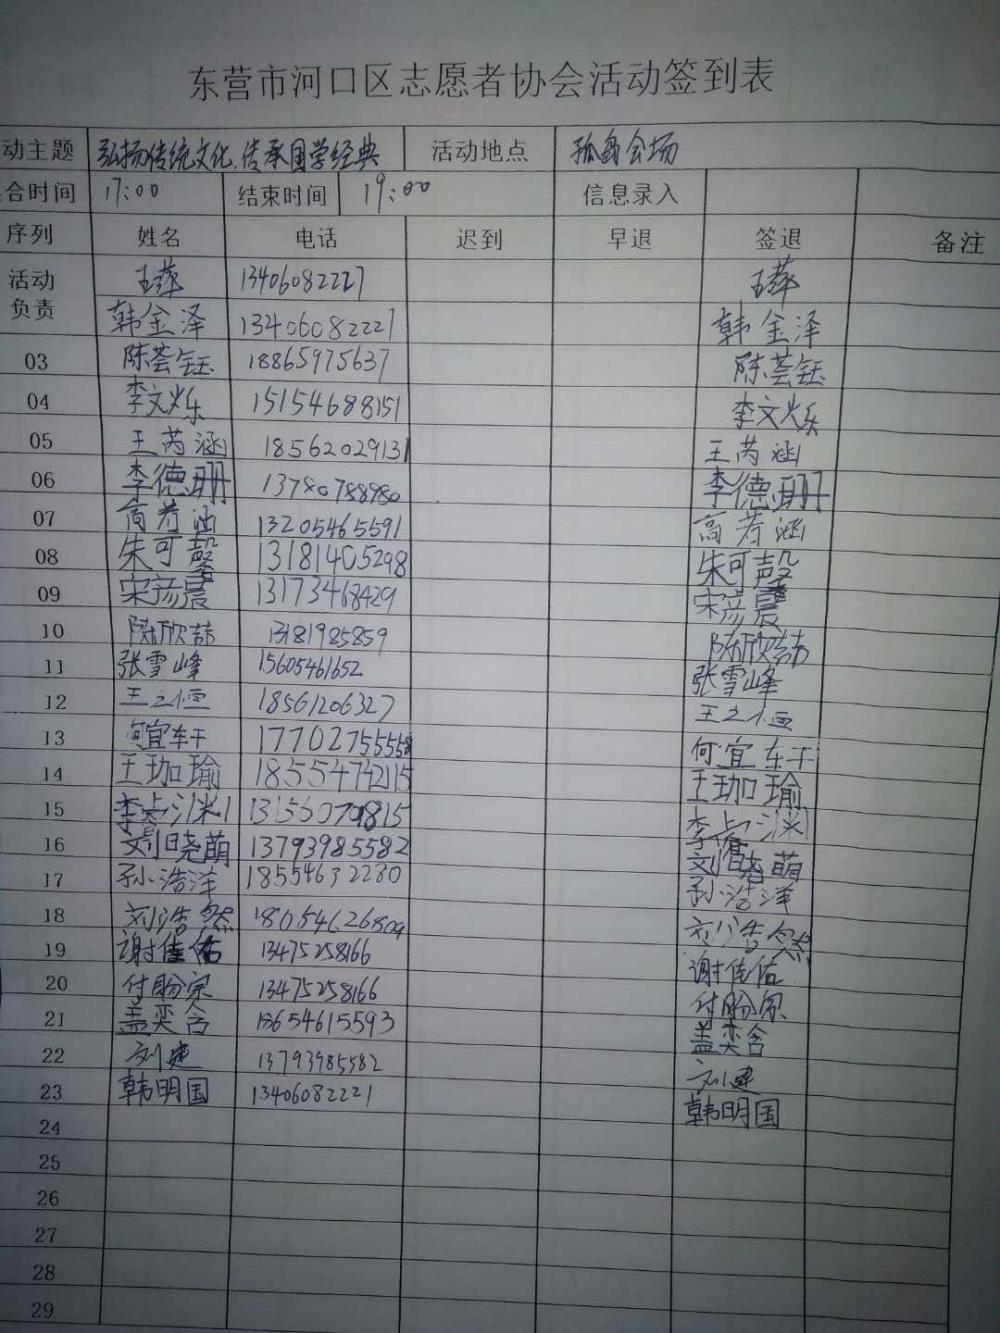 东营市河口区志愿者协会活动签到表
动主题 弘扬传统文化.传承国学经典 活动地点 孤岛会场
合时间 17:00 结束时间 19:00 信息录入
序列 姓名 电话 迟到 早退 签退 备注
活动 王萍 13406082227 王萍
负责 韩金泽 13406082227 韩金泽
03 陈荟钰 18865975637 陈荟钰
04 李文烁 15154688151 李文烁
05 王芮涵 18562029131 王芮涵
06 李德珊 13780788980 李德珊
07 高若涵 13205465591 高若涵
08 朱可馨 13181405298 朱可馨
09 宋彦晨 13173468429 宋彦晨
10 陈欣喆 13181985859 陈欣喆
11 张雪峰 15605461652 张雪峰
12 王之恒 18561206327 王之恒
13 何宜轩 17702755558 何宜轩
14 王珈瑜 18554742115 王珈瑜
15 13156079815
16 刘晓萌 13793985582 刘晓萌
17 孙浩洋 18554632230 孙浩洋
18 刘浩然 18054626809 刘浩然
19 谢佳佑 13475258166 谢佳佑
20 付盼宗 13475258166 付盼宗
21 盖奕含 18654615593 盖奕含
22 刘建 13793985582 刘建
23 韩明国 13406082221 韩明国
24
25
26
27
28
29